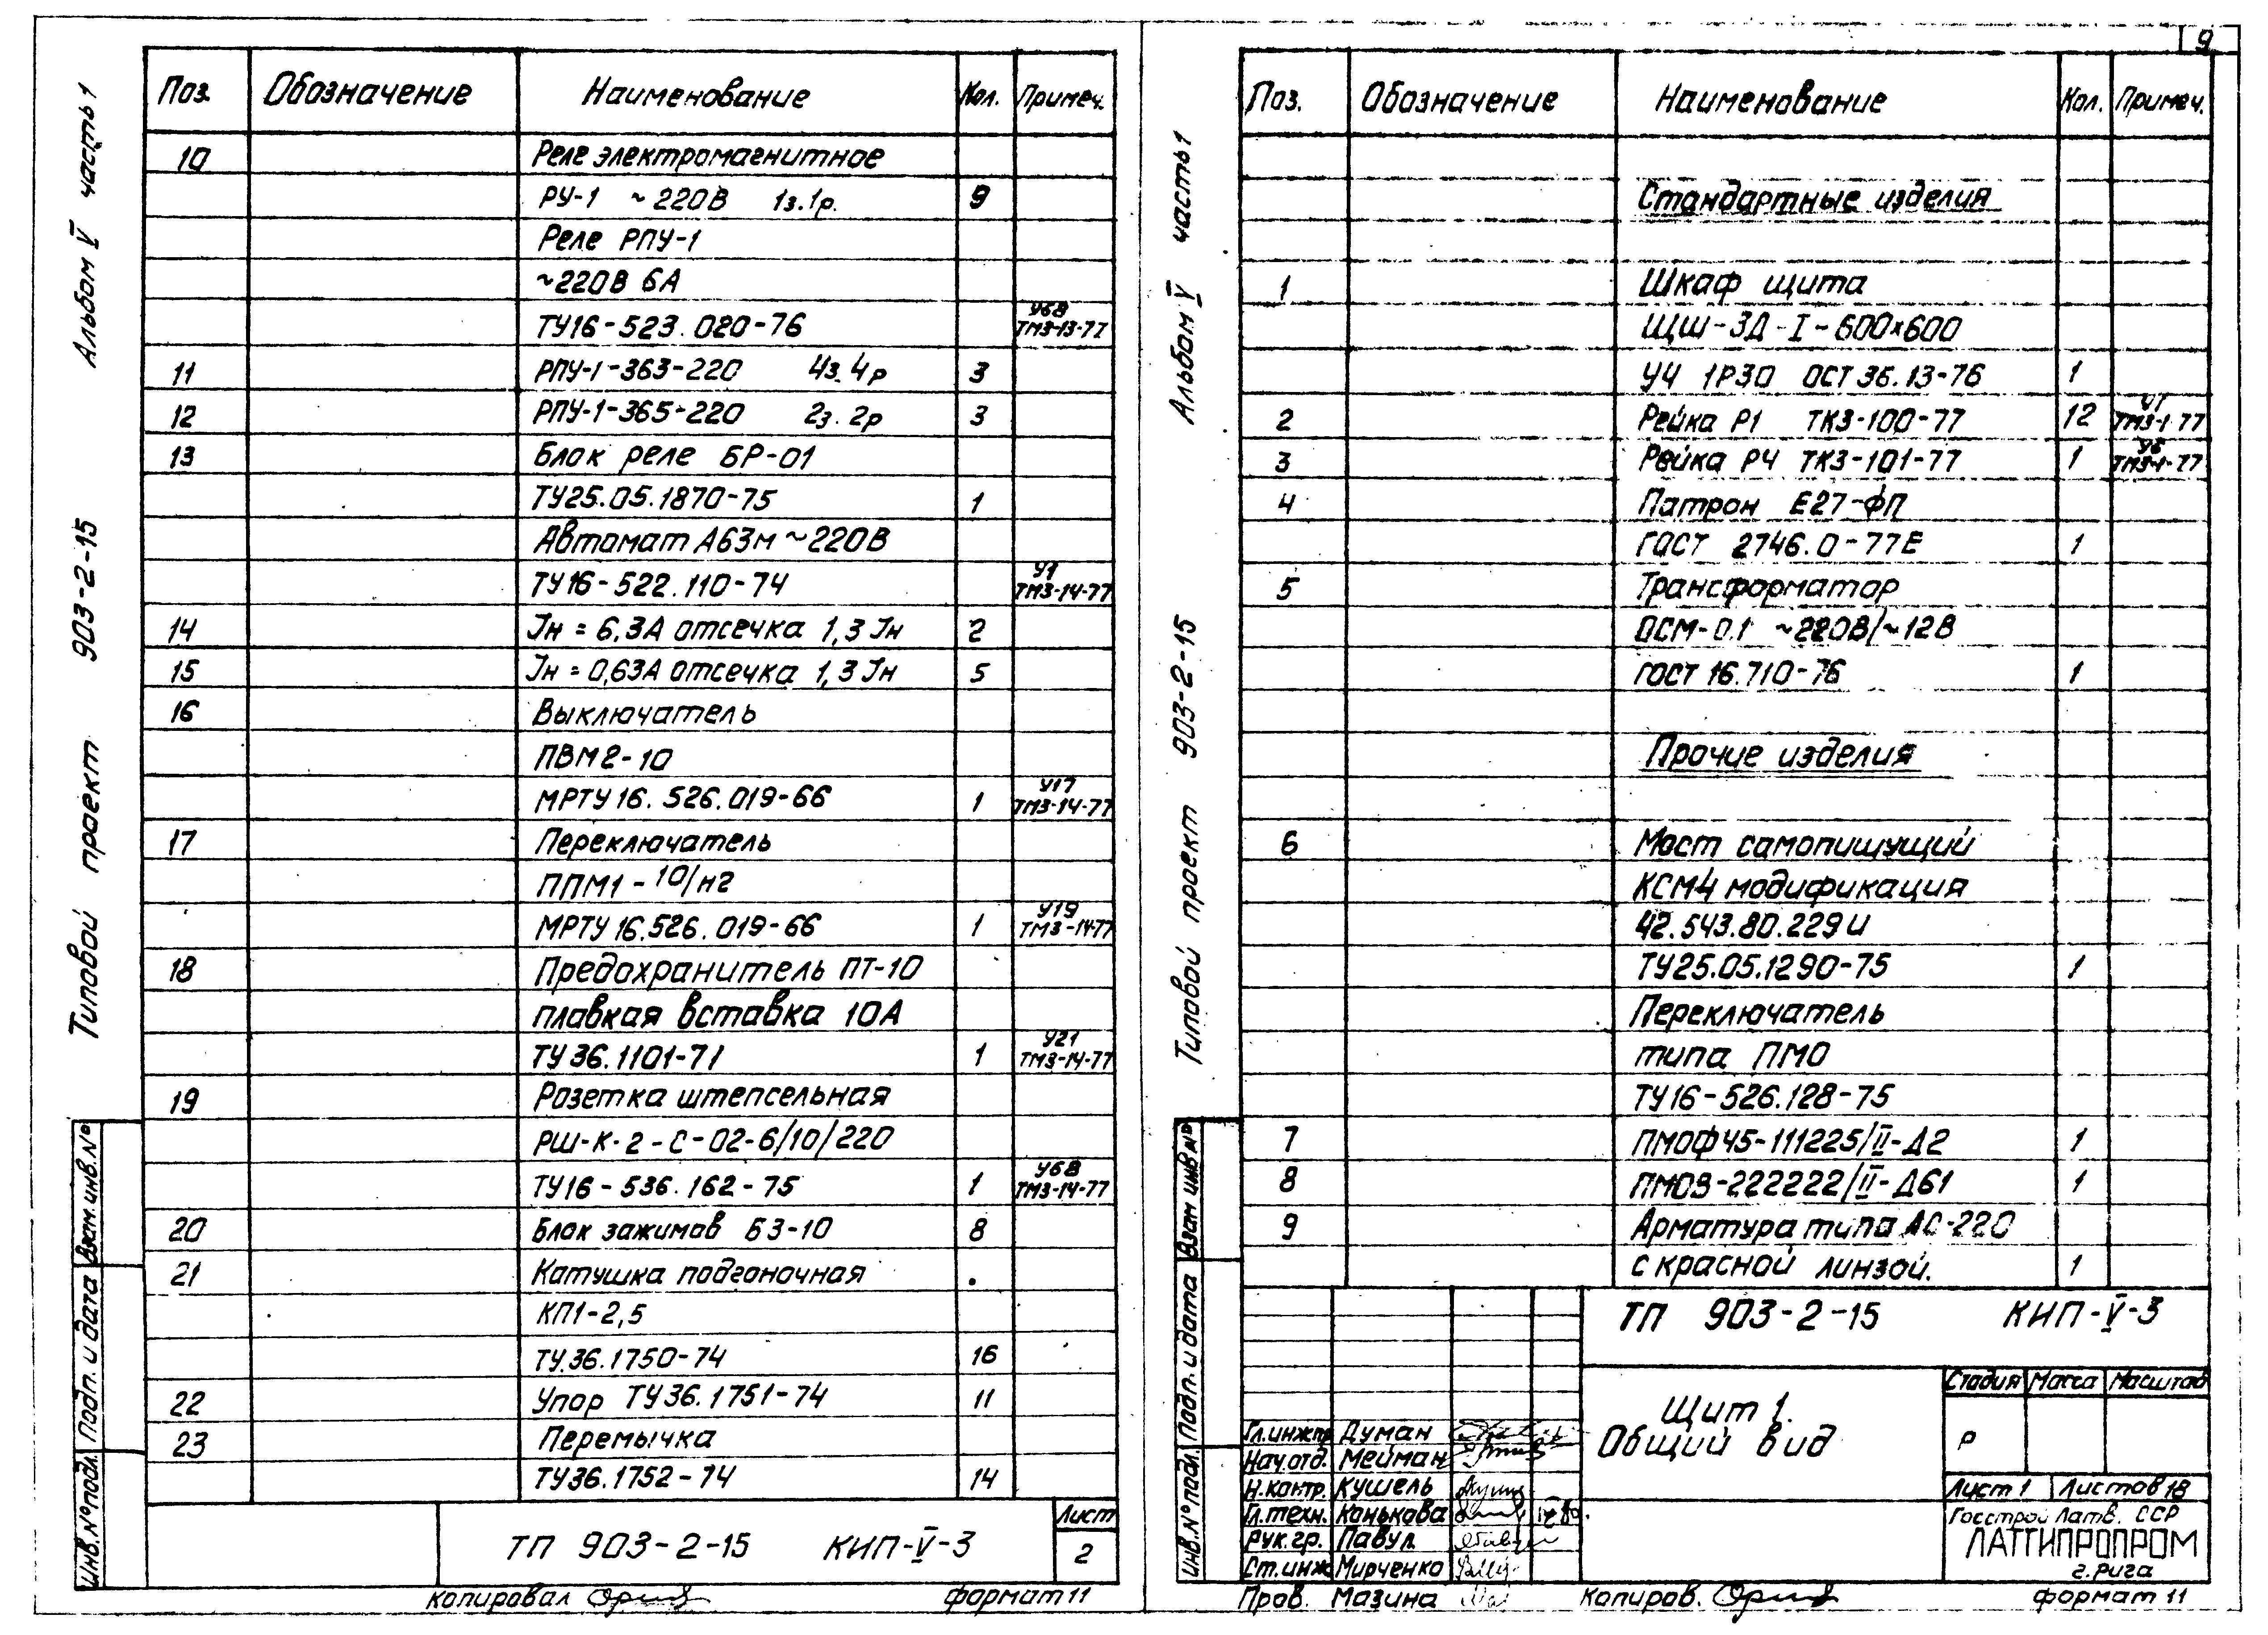 Альбом V часть 1
Типовой проект 903-2-15
Поз. Обозначение Наименование Кол. Примеч.
10 Реле электромагнитное
РУ-1 ~220В 1з.1р. 9
Реле РПУ-1
~220В 6А
У68
ТУ16-523.020-76 ТМ3-13-77
11 РПУ-1-363-220 4з.4р 3
12 РПУ-1-365-220 2з.2р 3
13 Блок реле БР-01
ТУ25.05.1870-75 1
Автомат А63м ~220В
У1
ТУ16-522.110-74 ТМ3-14-77
14 Jн = 6,3А отсечка 1,3 Jн 2
15 Jн = 0,63А отсечка 1,3 Jн 5
16 Выключатель
ПВМ2-10
У17
МРТУ 16.526.019-66 1 ТМ3-14-77
17 Переключатель
ППМ1-10/н2
У19
МРТУ 16.526.019-66 1 ТМ3-14-77
18 Предохранитель ПТ-10
плавкая вставка 10А
У21
ТУ 36.1101-71 1 ТМ3-14-77
19 Розетка штепсельная
РШ-К-2-С-02-6/10/220
У68
ТУ16-536.162-75 1 ТМ3-14-77
20 Блок зажимов БЗ-10 8
21 Катушка подгоночная
КП1-2,5
ТУ.36.1750-74 16
22 Упор ТУ36.1751-74 11
23 Перемычка
ТУ36.1752-74 14
Взам.инв.№
Подп. и дата
Инв.№подл.
ТП 903-2-15 КИП-V-3
Лист
2
копировал
формат 11
9
Альбом V часть 1
Типовой проект 903-2-15
Поз. Обозначение Наименование Кол. Примеч.
Стандартные изделия
1 Шкаф щита
ЩШ-ЗД-I-600×600
У4 1Р30 ОСТ 36.13-76 1
У1
2 Рейка Р1 ТК3-100-77 12 ТМ3-1-77
У6
3 Рейка Р4 ТК3-101-77 1 ТМ3-1-77
4 Патрон Е27-ФП
ГОСТ 2746.0-77Е 1
5 Трансформатор
ОСМ-0.1 ~220В/~12В
ГОСТ 16.710-76 1
Прочие изделия
6 Мост самопишущий
КСМ4 модификация
42.543.80.229И
ТУ25.05.1290-75 1
Переключатель
типа ПМО
ТУ16-526.128-75
7 ПМОФ45-111225/II-Д2 1
8 ПМОВ-222222/II-Д61 1
9 Арматура типа АС-220
с красной линзой. 1
Взам инв№
Подп. и дата
Инв.№подл.
ТП 903-2-15 КИП-V-3
Щит 1.
Общий вид
Стадия Масса Масштаб
Р
Лист 1 Листов 18
Госстрой Латв. ССР
ЛАТГИПРОПРОМ
г. Рига
Гл.инжпр Думан
Нач.отд. Мейман
Н.контр. Кушель
Гл.техн. Конькова
Рук.гр. Павул
Ст.инж Мирченко
Пров. Мазина
Копиров.
формат 11